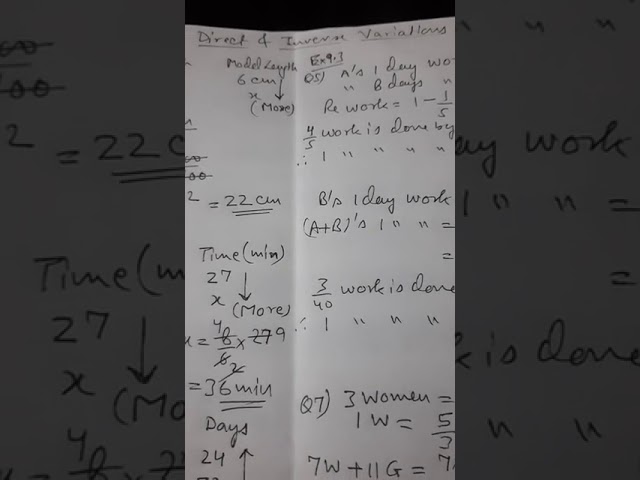 Direct & Inverse Variations
Model Length
6 cm
x
(More)
2 = 22 cm
Time (min)
27
x (More)
= 4 8/6 2 × 27 9
= 36 min
Days
24
Ex 9.3
Q5) A's 1 day wo
" B days "
Re work = 1 - 1/5
4/5 work is done by
∴ 1 " " " "
B's 1 day work
(A+B)'s 1 " " =
=
3/40 work is done
∴ 1 " " "
Q7) 3 women =
1 W = 5/3
7W + 11G = 7